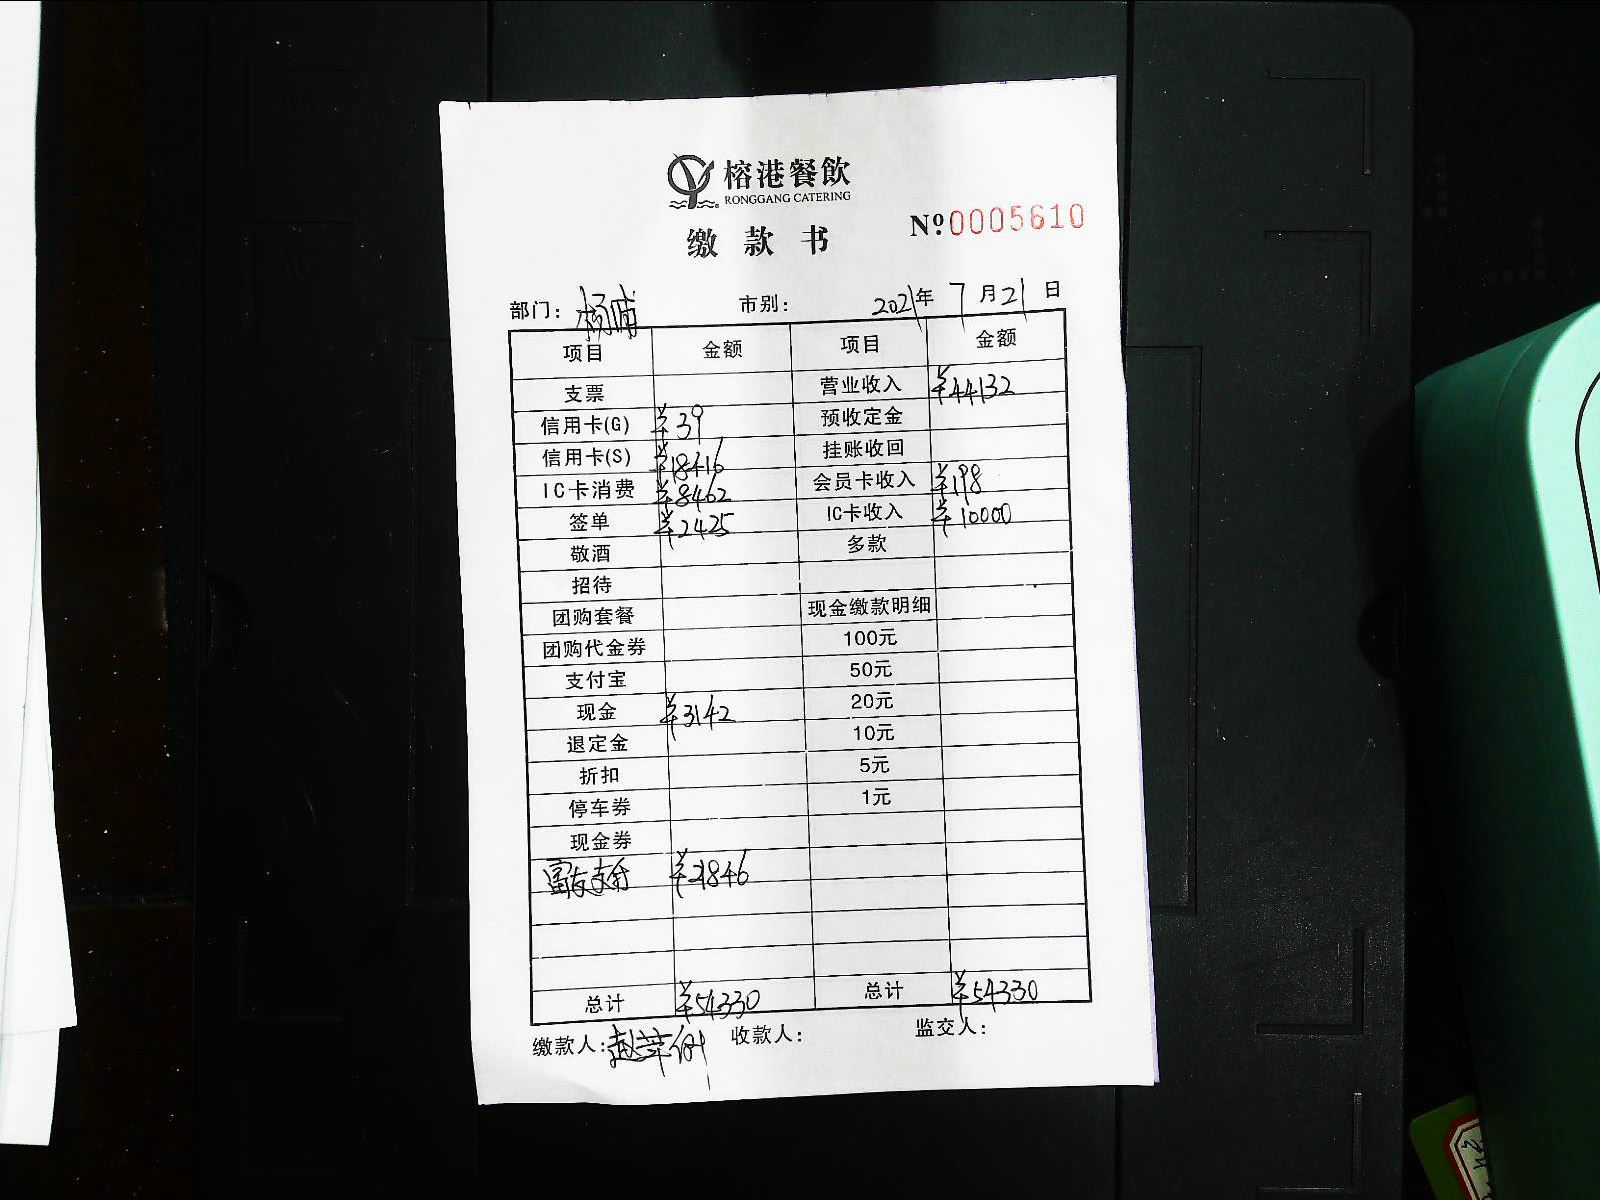 榕港餐飲
RONGGANG CATERING
缴款书
№0005610
部门：杨浦 市别： 2021年7月21日
项目 金额 项目 金额
支票 营业收入 ¥44132
信用卡(G) ¥39 预收定金
信用卡(S) ¥18416 挂账收回
IC卡消费 ¥8462 会员卡收入 ¥198
签单 ¥2425 IC卡收入 ¥10000
敬酒 多款
招待
团购套餐 现金缴款明细
团购代金券 100元
支付宝 50元
现金 ¥3142 20元
退定金 10元
折扣 5元
停车券 1元
现金券
富友支付 ¥21846
总计 ¥54330 总计 ¥54330
缴款人： 收款人： 监交人：